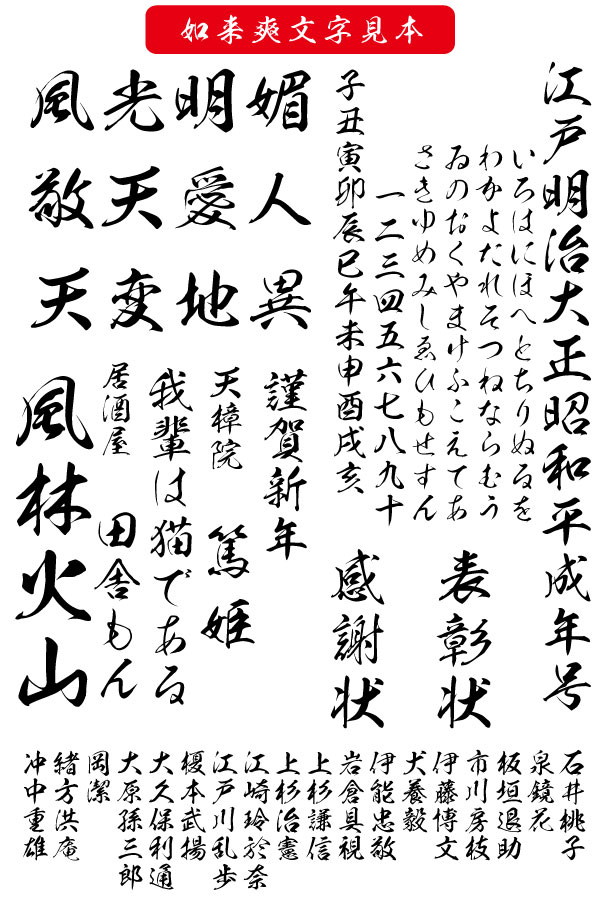 如来爽文字見本
江戸明治大正昭和平成年号
いろはにほへとちりぬるを
わかよたれそつねならむう
ゐのおくやまけふこえてあ
さきゆめみしゑひもせすん
一二三四五六七八九十
子丑寅卯辰巳午未申酉戌亥
表彰状
感謝状
媚人異
明愛地
光天変
風敬天
謹賀新年
天樟院 篤姫
我輩は猫である
居酒屋 田舎もん
風林火山
石井桃子
泉鏡花
板垣退助
市川房枝
伊藤博文
犬養毅
伊能忠敬
岩倉具視
上杉謙信
上杉治憲
江崎玲於奈
江戸川乱歩
榎本武揚
大久保利通
大原孫三郎
岡潔
緒方洪庵
沖中重雄